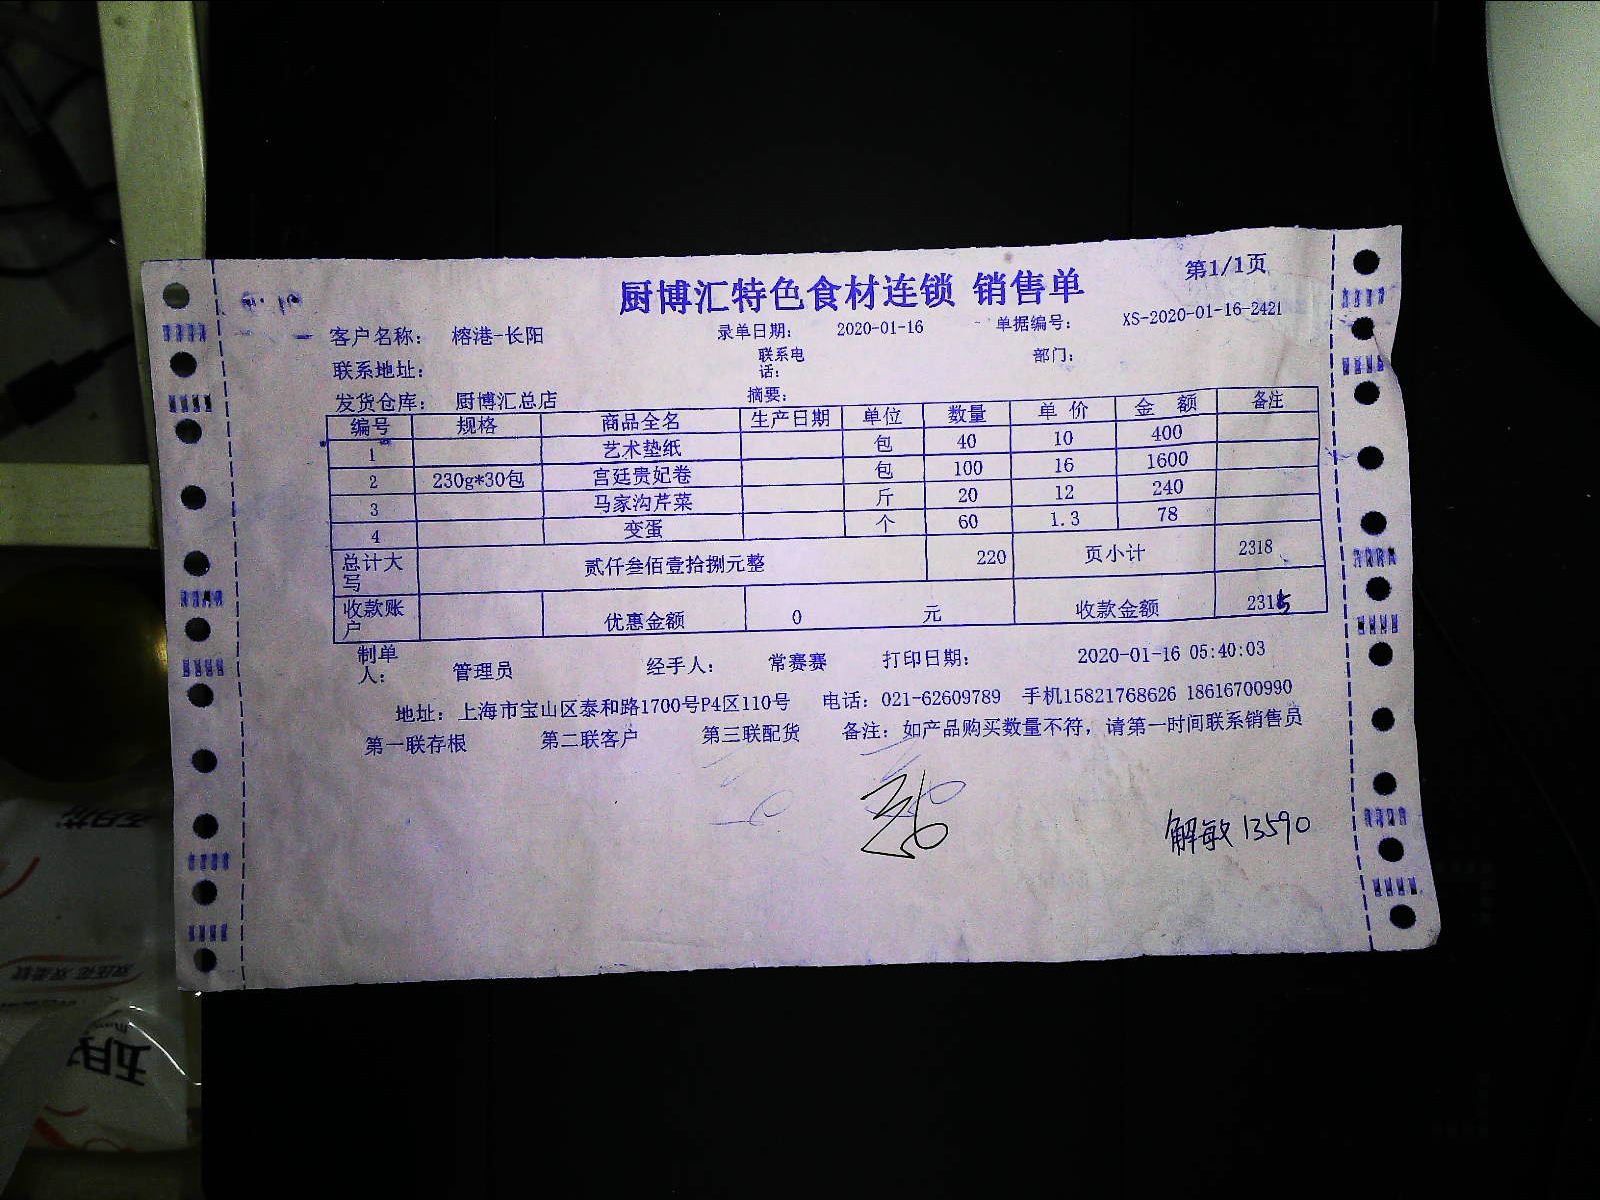 第1/1页
厨博汇特色食材连锁 销售单
客户名称: 榕港-长阳 录单日期: 2020-01-16 单据编号: XS-2020-01-16-2421
联系地址: 联系电话: 部门:
发货仓库: 厨博汇总店 摘要:
编号 规格 商品全名 生产日期 单位 数量 单 价 金 额 备注
1 艺术垫纸 包 40 10 400
2 230g*30包 宫廷贵妃卷 包 100 16 1600
3 马家沟芹菜 斤 20 12 240
4 变蛋 个 60 1.3 78
总计大写 贰仟叁佰壹拾捌元整 220 页小计 2318
收款账户 优惠金额 0 元 收款金额 2315
制单人: 管理员 经手人: 常赛赛 打印日期: 2020-01-16 05:40:03
地址: 上海市宝山区泰和路1700号P4区110号 电话: 021-62609789 手机15821768626 18616700990
第一联存根 第二联客户 第三联配货 备注: 如产品购买数量不符, 请第一时间联系销售员
解敏 13590